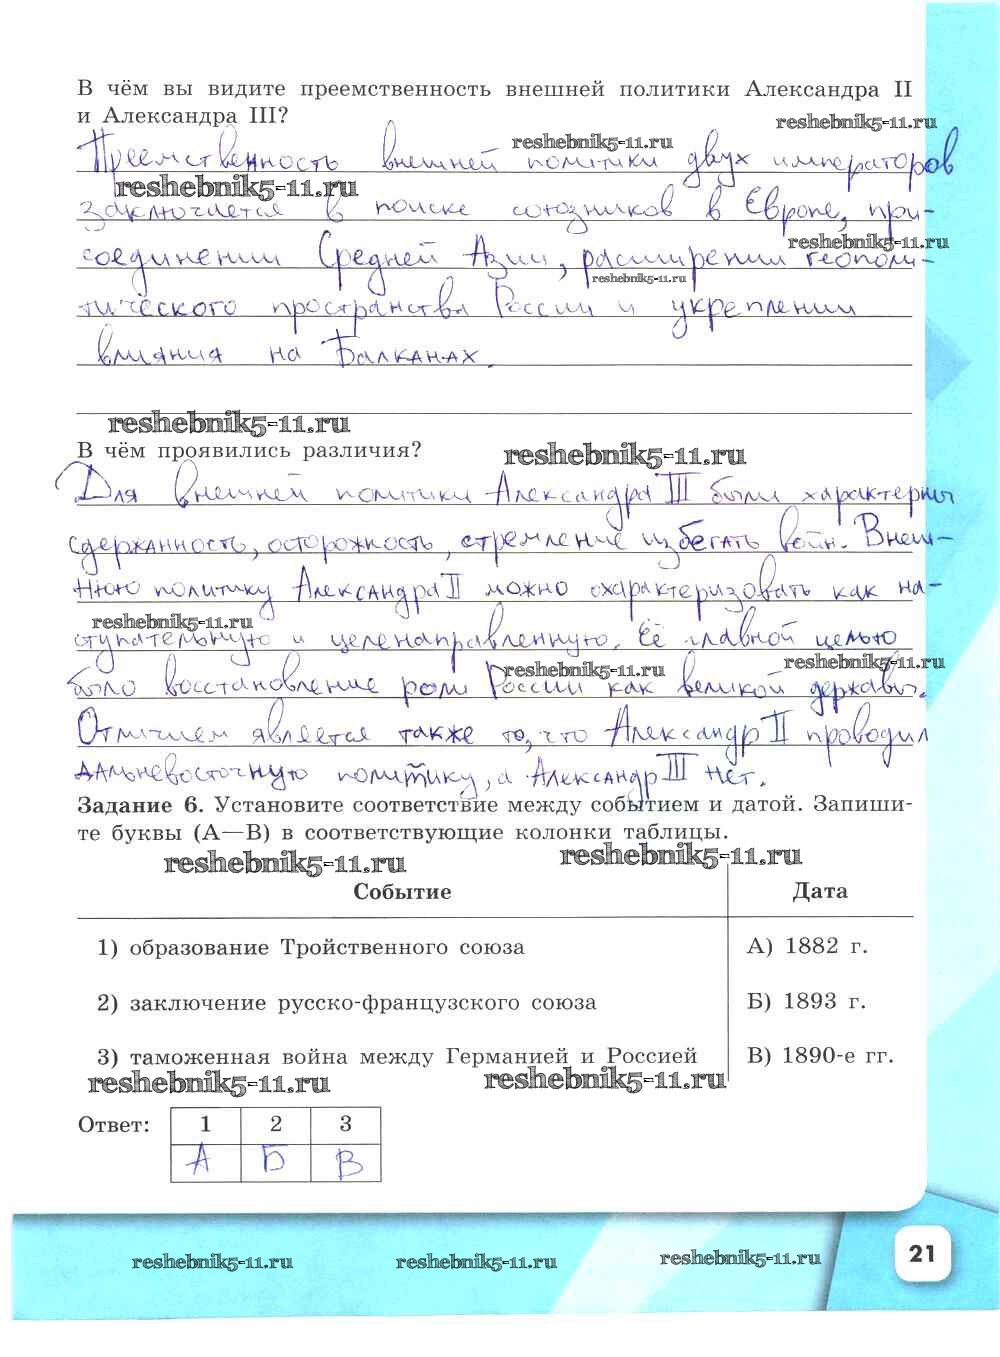 В чём вы видите преемственность внешней политики Александра II
и Александра III?
reshebnik5-11.ru
reshebnik5-11.ru
Преемственность внешней политики двух императоров
reshebnik5-11.ru
заключается в поиске союзников в Европе, при-
reshebnik5-11.ru
соединении Средней Азии, расширении геополи-
reshebnik5-11.ru
тического пространства России и укреплении
влияния на Балканах.
reshebnik5-11.ru
В чём проявились различия?
reshebnik5-11.ru
Для внешней политики Александра III были характерны
сдержанность, осторожность, стремление избегать войн. Внеш-
нюю политику Александра II можно охарактеризовать как на-
reshebnik5-11.ru
ступательную и целенаправленную. Её главной целью
reshebnik5-11.ru
reshebnik5-11.ru
было восстановление роли России как великой державы.
Отличием является также то, что Александр II проводил
дальневосточную политику, а Александр III нет.
Задание 6. Установите соответствие между событием и датой. Запиши-
те буквы (А—В) в соответствующие колонки таблицы.
reshebnik5-11.ru
reshebnik5-11.ru
Событие Дата
1) образование Тройственного союза А) 1882 г.
2) заключение русско-французского союза Б) 1893 г.
3) таможенная война между Германией и Россией В) 1890-е гг.
reshebnik5-11.ru
reshebnik5-11.ru
Ответ: 1 2 3
А Б В
reshebnik5-11.ru
reshebnik5-11.ru
reshebnik5-11.ru
21